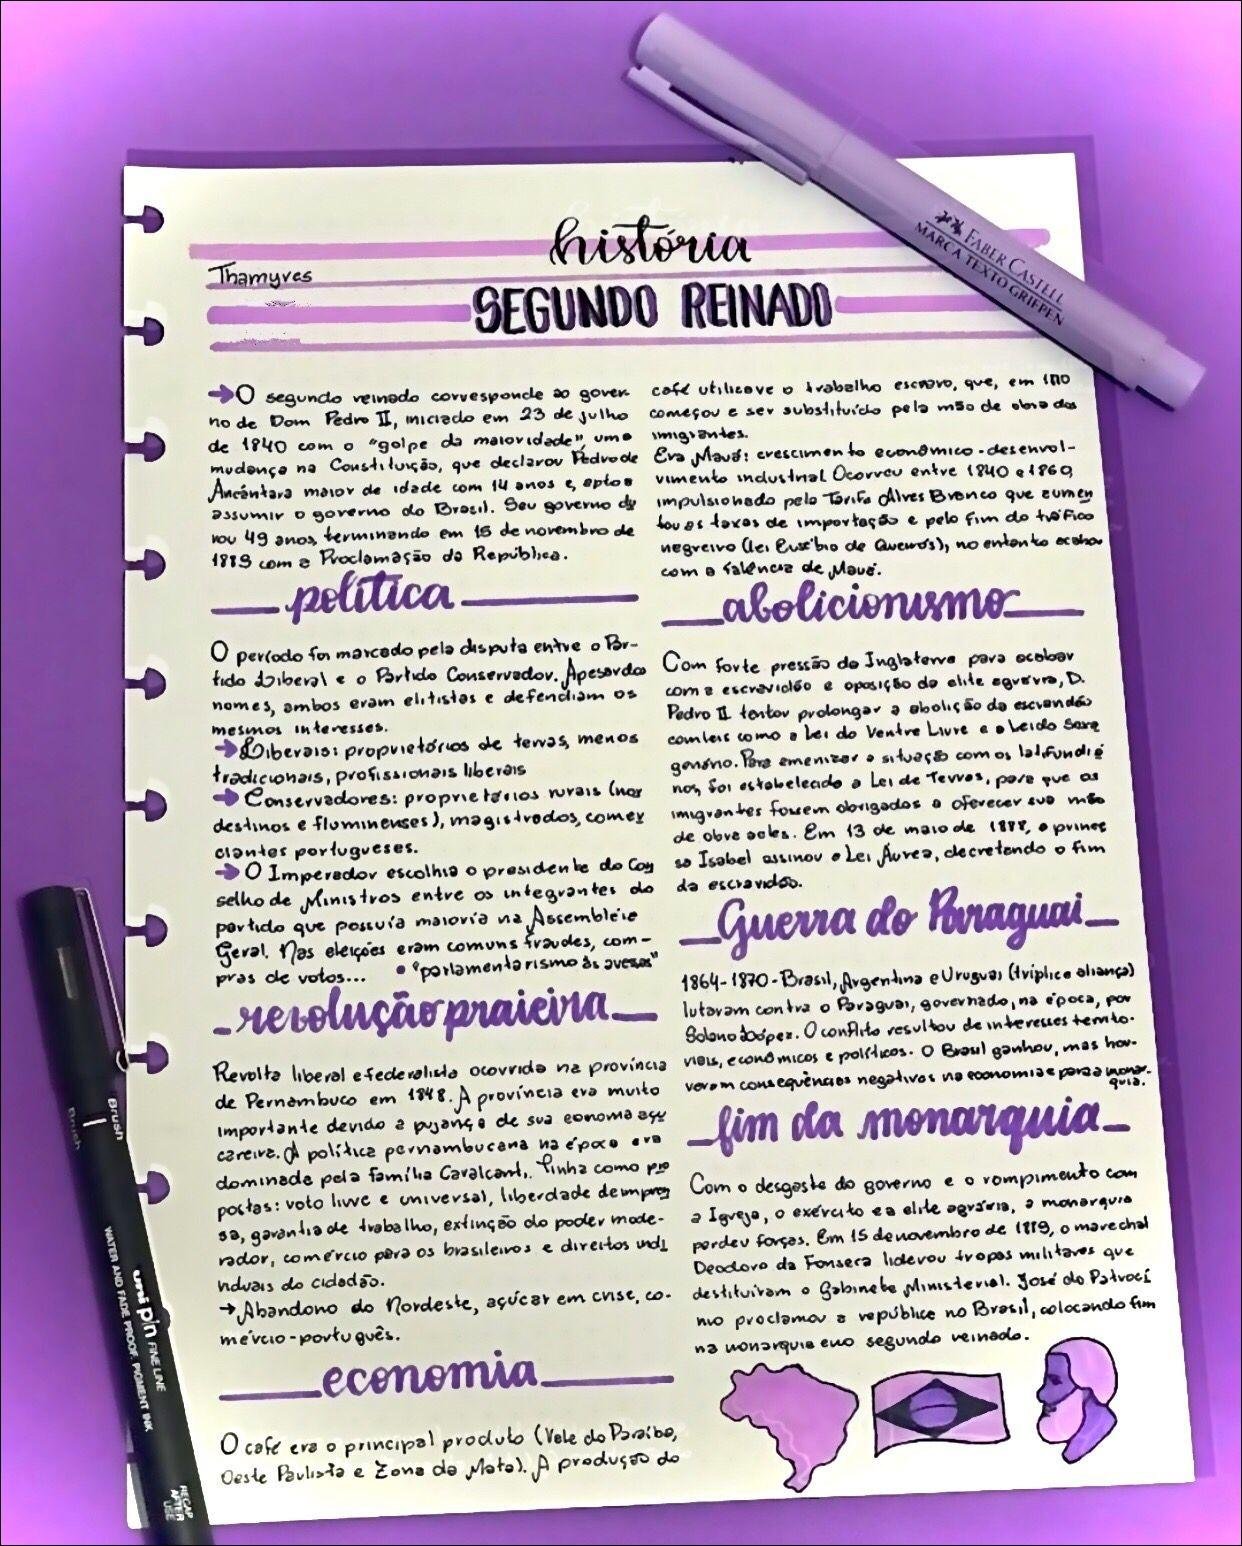 história
Thamyres
SEGUNDO REINADO
→O segundo reinado corresponde ao gover-
no de Dom Pedro II, iniciado em 23 de julho
de 1840 com o "golpe da maioridade", uma
mudança na Constituição, que declarou Pedro de
Alcântara maior de idade com 14 anos e, apto a
assumir o governo do Brasil. Seu governo du
rou 49 anos, terminando em 15 de novembro de
1889 com a Proclamação da República.
política
O período foi marcado pela disputa entre o Par-
tido Liberal e o Partido Conservador. Apesar dos
nomes, ambos eram elitistas e defendiam os
mesmos interesses.
→Liberais: proprietários de terras, menos
tradicionais, profissionais liberais
→Conservadores: proprietários rurais (nor
destinos e fluminenses), magistrados, comer
ciantes portugueses.
→O Imperador escolhia o presidente do Con
selho de Ministros entre os integrantes do
partido que possuía maioria na Assembleia
Geral. Nas eleições eram comuns fraudes, com-
pras de votos... • "parlamentarismo às avessas"
revolução praieira
Revolta liberal e federalista ocorrida na província
de Pernambuco em 1848. A província era muito
importante devido a pujança de sua economia açu
careira. A política pernambucana na época era
dominada pela família Cavalcanti. Tinha como pro
postas: voto livre e universal, liberdade de impren
sa, garantia de trabalho, extinção do poder mode-
rador, comércio para os brasileiros e direitos indi
viduais do cidadão.
→Abandono do Nordeste, açúcar em crise, co-
mércio-português.
economia
O café era o principal produto (Vale do Paraíba,
Oeste Paulista e Zona da Mata). A produção do
café utilizava o trabalho escravo, que, em
começou a ser substituído pela mão de obra dos
imigrantes.
Era Mauá: crescimento econômico-desenvol-
vimento industrial Ocorreu entre 1840 e 1860,
impulsionado pela Tarifa Alves Branco que aumen
tou as taxas de importação e pelo fim do tráfico
negreiro (lei Eusébio de Queirós), no entanto acabou
com a falência de Mauá.
abolicionismo
Com forte pressão da Inglaterra para acabar
com a escravidão e oposição da elite agrária, D.
Pedro II tentou prolongar a abolição da escravidão
com leis como a Lei do Ventre Livre e a Lei do Sexa
genário. Para amenizar a situação com os latifundiá
rios, foi estabelecida a Lei de Terras, para que os
imigrantes fossem obrigados a oferecer sua mão
de obra a eles. Em 13 de maio de 1888, a prince
sa Isabel assinou a Lei Áurea, decretando o fim
da escravidão.
Guerra do Paraguai
1864-1870-Brasil, Argentina e Uruguai (tríplice aliança)
lutaram contra o Paraguai, governado, na época, por
Solano López. O conflito resultou de interesses territo-
riais, econômicos e políticos. O Brasil ganhou, mas hou-
veram consequências negativas na economia e para a monar-
quia.
fim da monarquia
Com o desgaste do governo e o rompimento com
a Igreja, o exército e a elite agrária, a monarquia
perdeu forças. Em 15 de novembro de 1889, o marechal
Deodoro da Fonseca liderou tropas militares que
destituíram o Gabinete Ministerial. José do Patrocí
nio proclamou a república no Brasil, colocando fim
na monarquia e no segundo reinado.
FABER CASTELL
MARCA TEXTO GRIFPEN
Brush
Brush
uni pin FINE LINE
WATER AND FADE PROOF, PIGMENT INK
RECAP
AFTER
USE